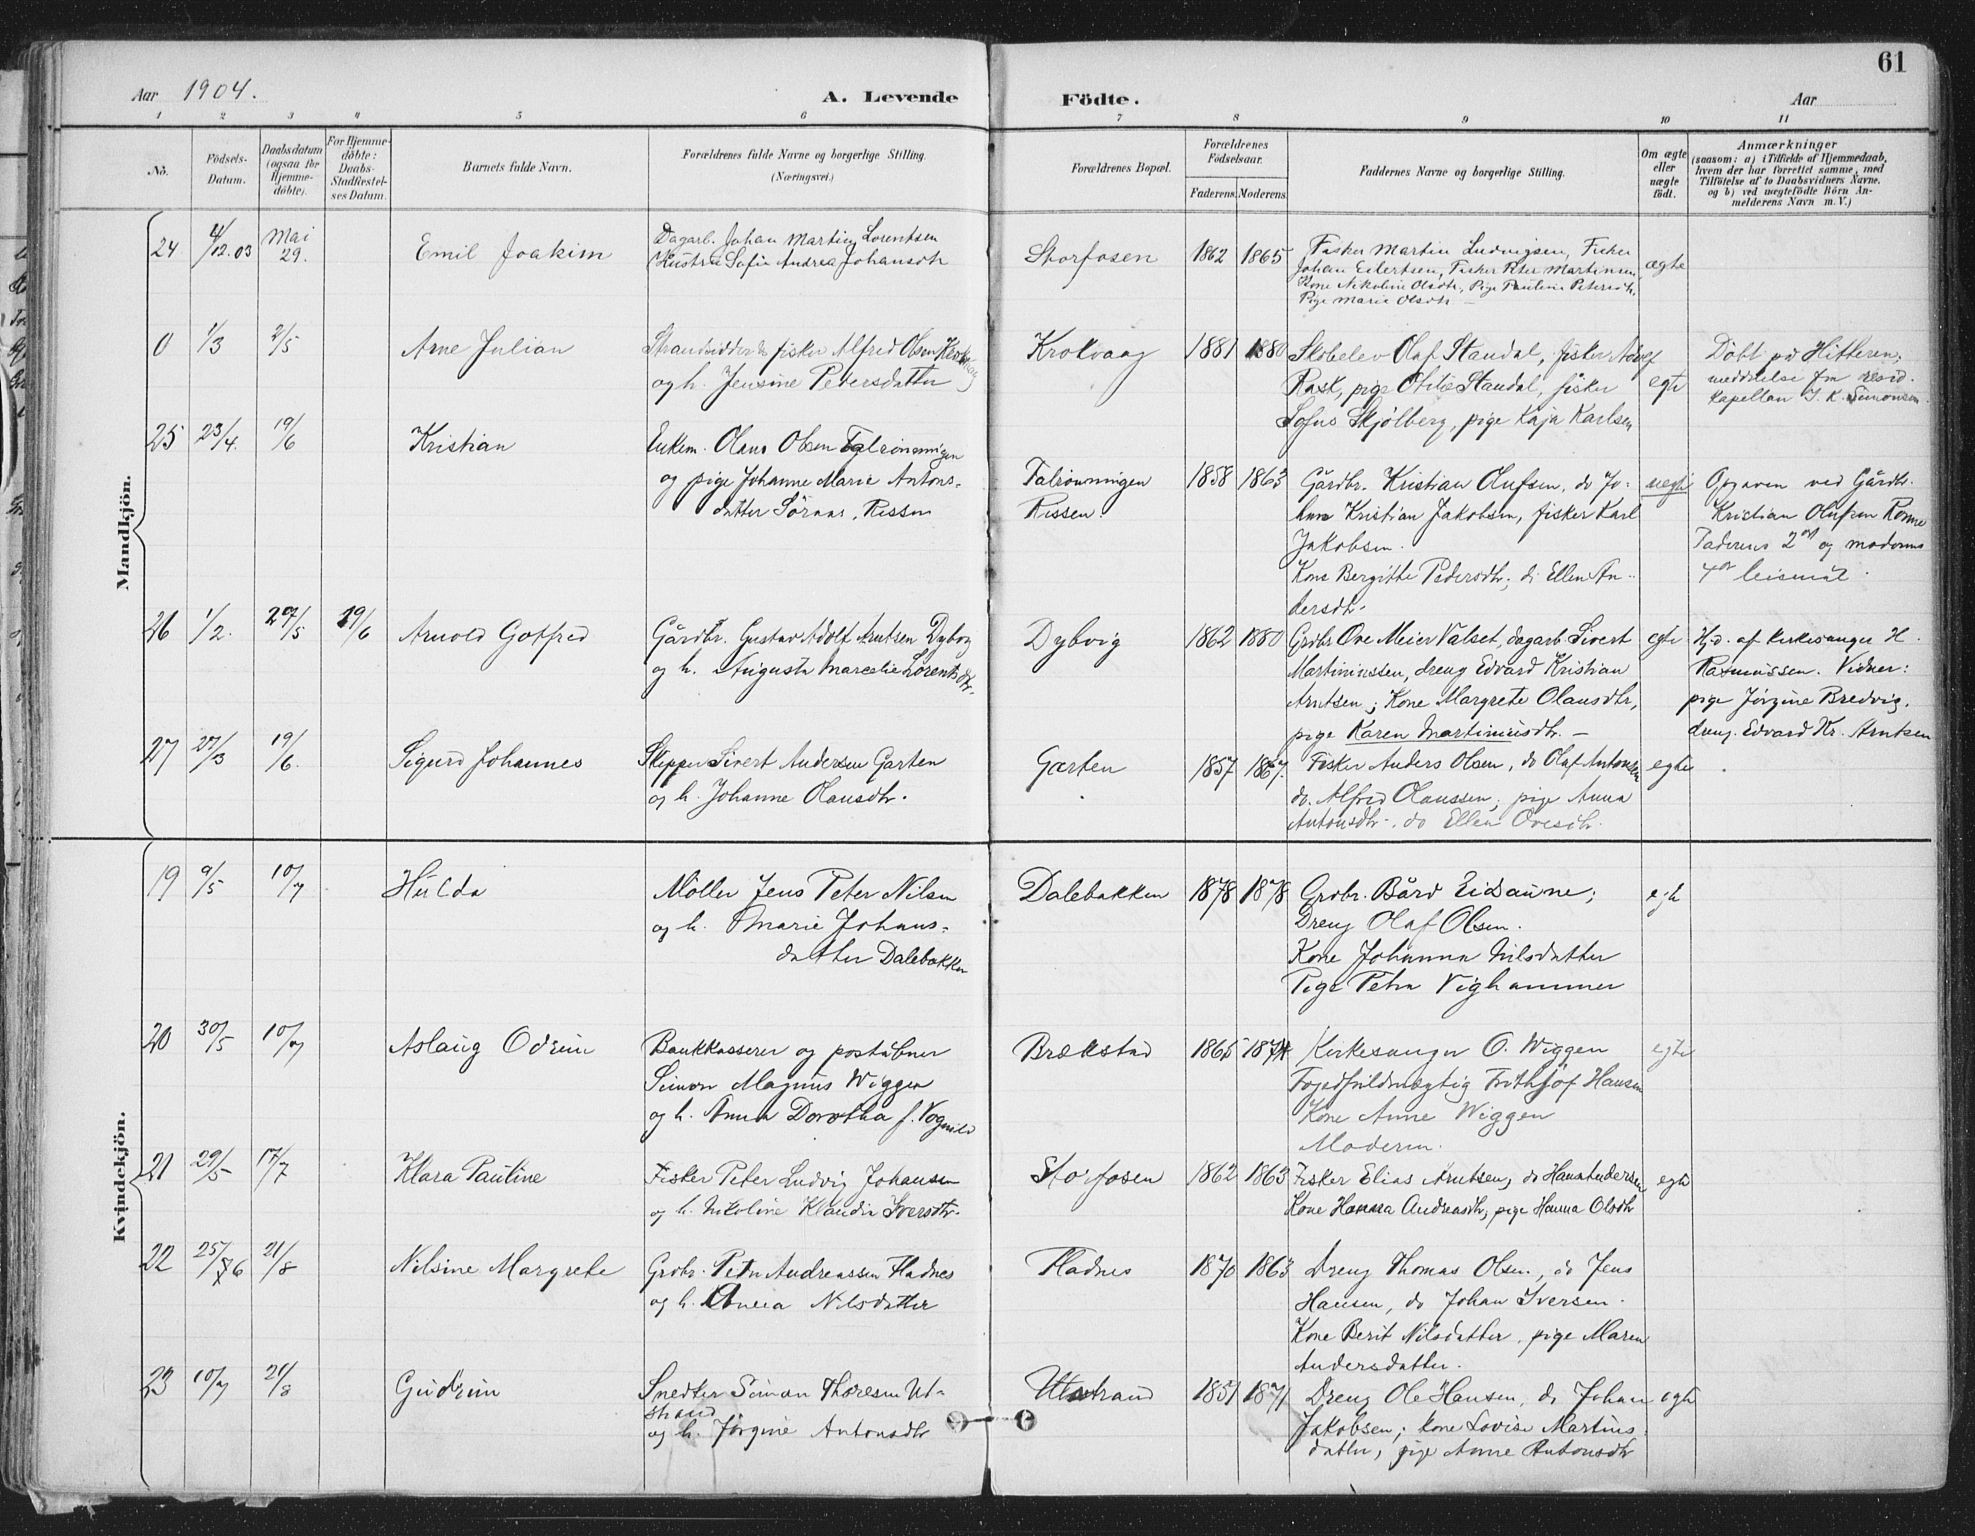 61
Aar 1904.
A. Levende
Födte.
Aar
1 2 3 4 5 6 7 8 9 10 11
No.
Födsels-Datum.
Daabsdatum (ogsaa for Hjemme-döbte).
For Hjemme-döbte: Daabs-Stadfæstel-ses Datum.
Barnets fulde Navn.
Forældrenes fulde Navne og borgerlige Stilling.
(Næringsvei.)
Forældrenes Bopæl.
Forældrenes Födselsaar.
Faderens. Moderens.
Faddernes Navne og borgerlige Stilling.
Om ægte eller uægte født.
Anmærkninger
(saasom: a) i Tilfælde af Hjemmedaab,
hvem der har forrettet samme, med
Tilföielse af to Daabsvidners Navne,
og b) ved uægtefödte Börn An-
melderens Navn m. V.)
Mandkjön.
24 4/12.03 Mai 29. Emil Joakim
Dagarb. Johan Martin Lorentsen
Hustru Sofie Andrea Johansdtr
Storfosen 1862 1865
Fisker Martin Ludvigsen, Fisker
Johan Eilertsen, Fisker Peter Martinsen
Kone Nikoline Olsdtr, Pige Pauline Petersdtr.
Pige Marie Olsdtr —
ægte
0 1/3 2/5 Arne Julian
Strandsidder & fisker Alfred Olsen Krokvaag
og h. Jensine Petersdatter
Krokvaag 1881 1880
Olaf Standal, fisker Adolf
Rask, pige Standal, fisker
Sofus Skjølberg, pige Kaja Karlsen
egte
Döbt på Hitteren,
meddelelse fra resid.
kapellan J. K. Simonsen.
25 23/4. 19/6 Kristian
Enkem. Olaus Olsen Falrönningen
og pige Johanne Marie Antons-
datter Söraas, Rissen
Falrönningen
Rissen.
1858 1863
Gårdbr. Kristian Olufsen, do Jo-
han Kristian Jakobsen, fisker Karl
Jakobsen.
Kone Bergitte Pedersdtr; do Ellen An-
dersdtr.
uegte
Opgaven ved Gårdbr.
Kristian Olufsen Rønne
Faderens 2et og moderens
4et leiemål.
26 1/2. 29/5 19/6 Arnold Gotfred
Gårdbr. Gustav Adolf Arntsen Dybvig
og h. Augusta Marselie Lorentsdtr.
Dybvig 1862 1880
Grdbr Ove Meier Valset, dagarb. Sivert
Martiniussen, dreng Edvard Kristian
Arntsen; Kone Margrete Olausdtr,
pige Karen Martiniusdtr. —
egte
Hjd. af Kirkesanger H.
Rasmussen. Vidner:
pige Jørgine Bredvig,
dreng. Edvard Kr. Arntsen
27 27/3 19/6. Sigurd Johannes
Skipper Sivert Andersen Garten
og h. Johanne Olausdtr.
Garten 1857 1867.
Fisker Anders Olsen, do Olaf Antonsen
do. Alfred Olaussen; pige Anna
Antonsdtr. do Ellen Ovesdtr.
egte
Kvindekjön.
19 9/5 10/7 Hulda
Möller Jens Peter Nilsen
og h. Marie Johans-
datter Dalebakken
Dalebakken 1878 1878
Grdbr. Bård Eidaune;
Dreng Olaf Olsen.
Kone Johanna Nilsdatter
Pige Petra Vighammer
egte
20 30/5 10/7 Aslaug Odrun
Bankkasserer og postaabner
Simon Magnus Wiggen
og h. Anna Dorothea f. Vognild
Brækstad 1865 1874
Kirkesanger O. Wiggen
Fogedfuldmægtig Frithjof Hansen
Kone Anne Wiggen
Moderen.
egte
21 29/5 17/7 Klara Pauline
Fisker Peter Ludvig Johansen
og h. Nikoline Klaudia Iversdtr.
Storfosen 1862 1863
Fisker Elias Arntsen, do Hans Andersen
Kone Hanna Andreasdtr, pige Hanna Olsdtr
egte
22 25/6 21/8 Nilsine Margrete
Grdbr. Peter Andreassen Fladnes
og h. Anna Nilsdatter
Fladnes 1870 1863
Dreng Thomas Olsen, do Jens
Hansen, do Johan Iversen.
Kone Berit Nilsdatter, pige Maren
Andersdatter.
23 10/7 21/8 Gudrun
Snedker Simon Thoresen Ut-
strand
og h. Jörgine Antonsdtr
Utstrand 1851 1871
Dreng Ole Hansen, do Johan
Jakobsen; kone Lovise Martins-
datter, pige Anne Antonsdtr
egte